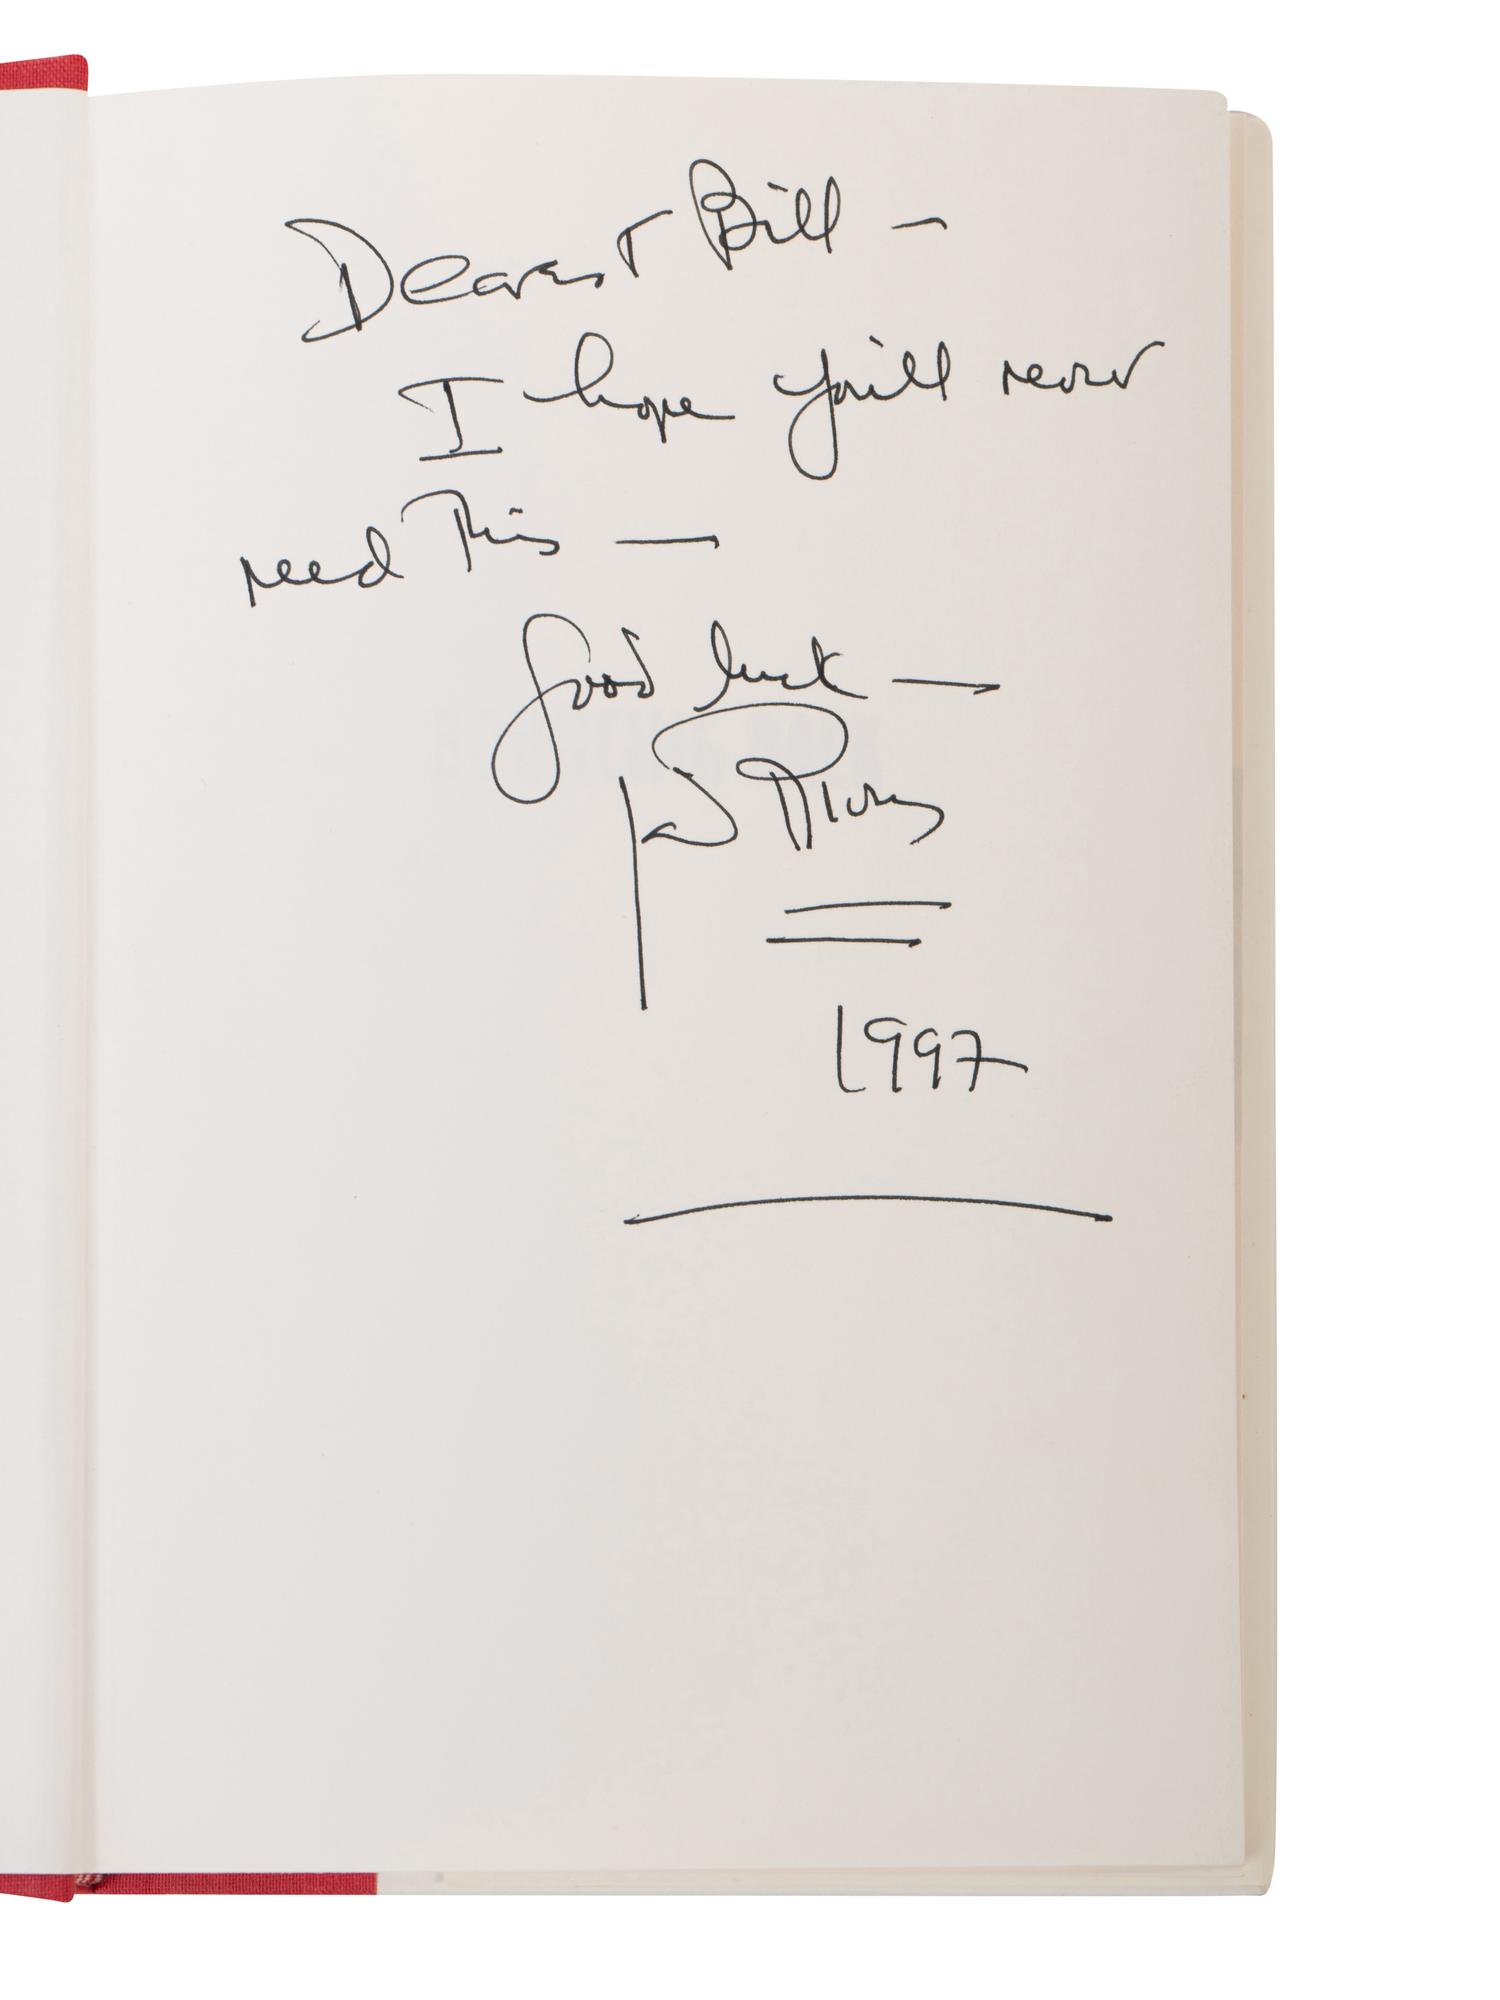 Dearest Bill —
I hope you'll never
need this —
Good luck —
Rivers
1997